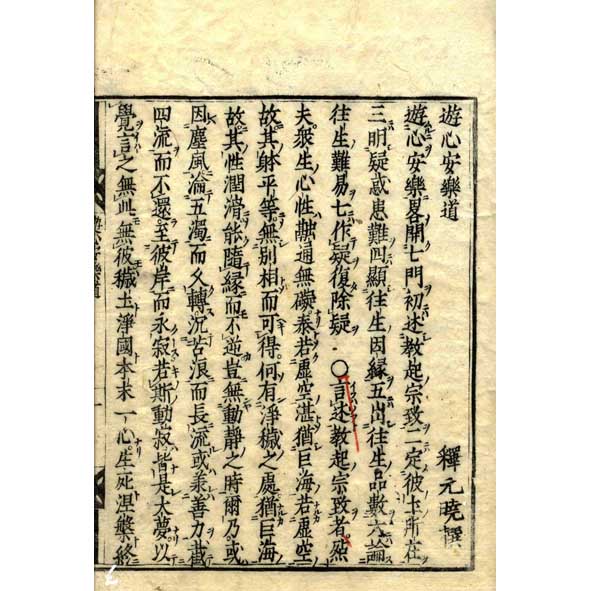 遊心安樂道
釋元曉撰
遊心安樂畧開七門初述教起宗致二定彼土所在
三明疑惑患難四顯往生因縁五出往生品數六論
往生難易七作疑復除疑○言述教起宗致者然
夫衆生心性融通無礙泰若虛空湛猶巨海若虛空
故其躰平等無别相而可得何有淨穢之處猶巨海
故其性潤滑能隨縁而不逆豈無動靜之時爾乃或
因塵風淪五濁而乆轉沉苦浪而長流或承善力截
四流而不還至彼岸而永寂若斯動寂皆是大夢以
覺言之無此無彼穢土淨國本末一心生死涅槃終